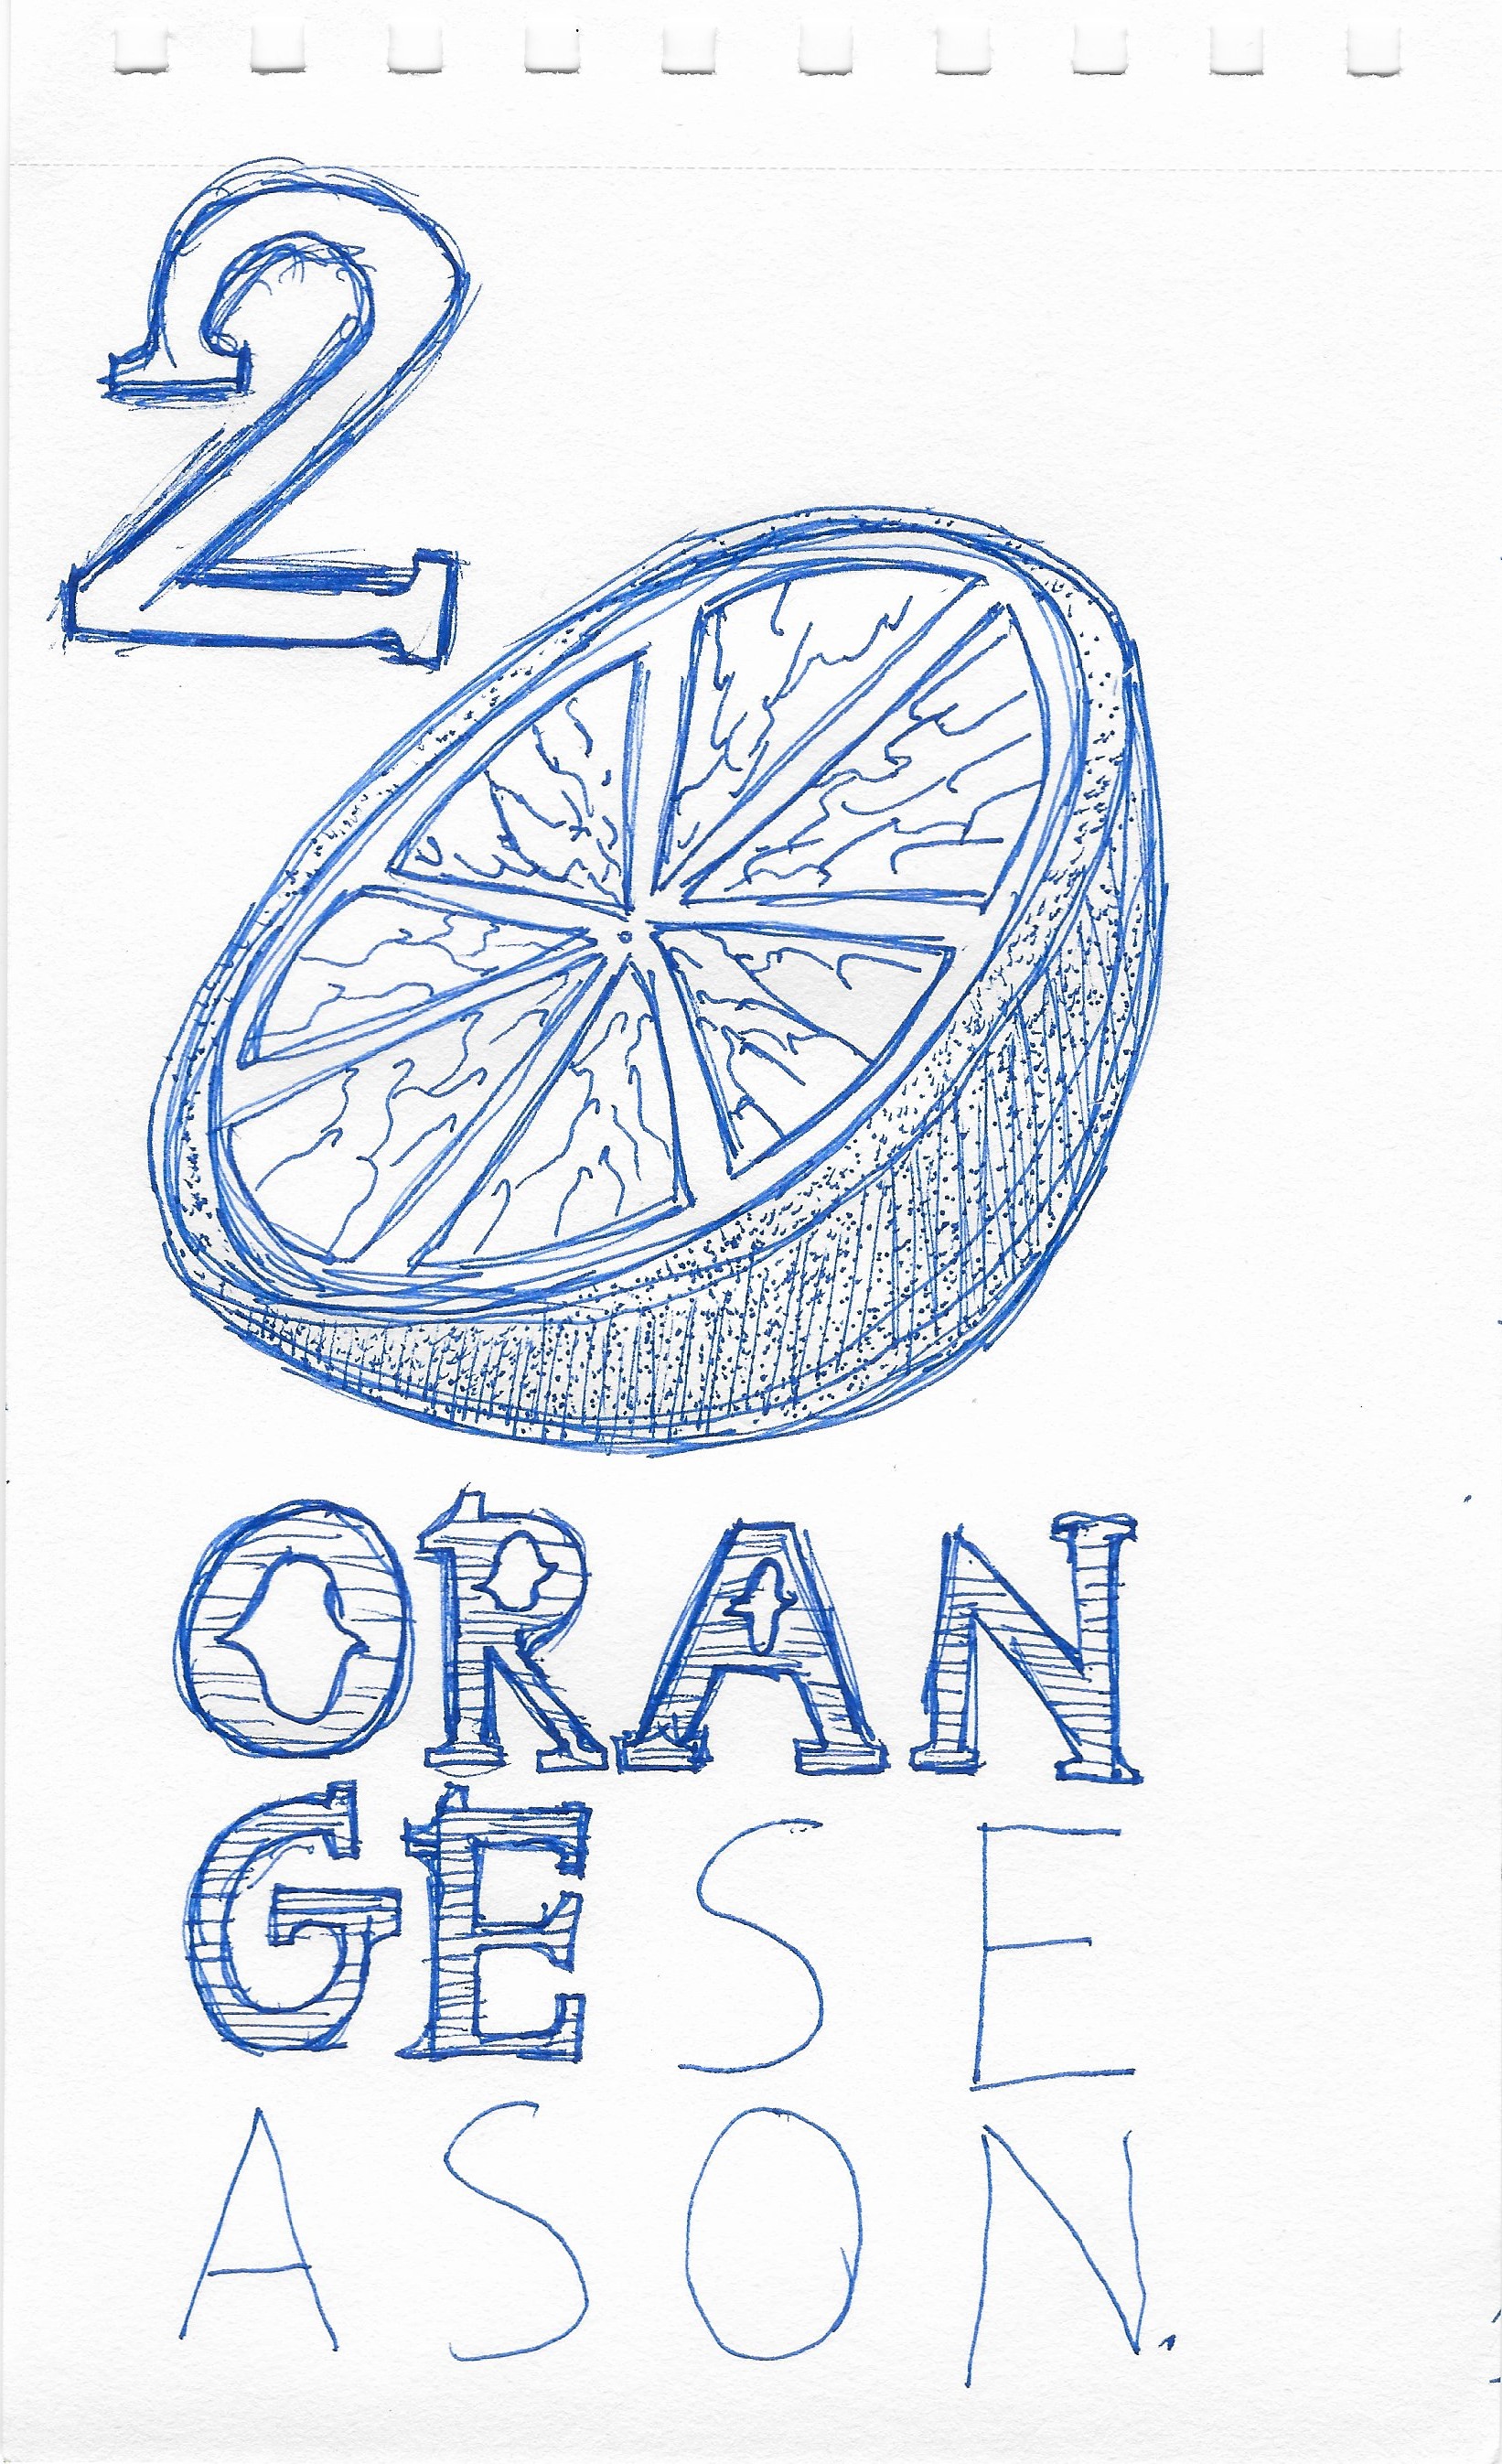 2
ORAN
GESE
ASON.